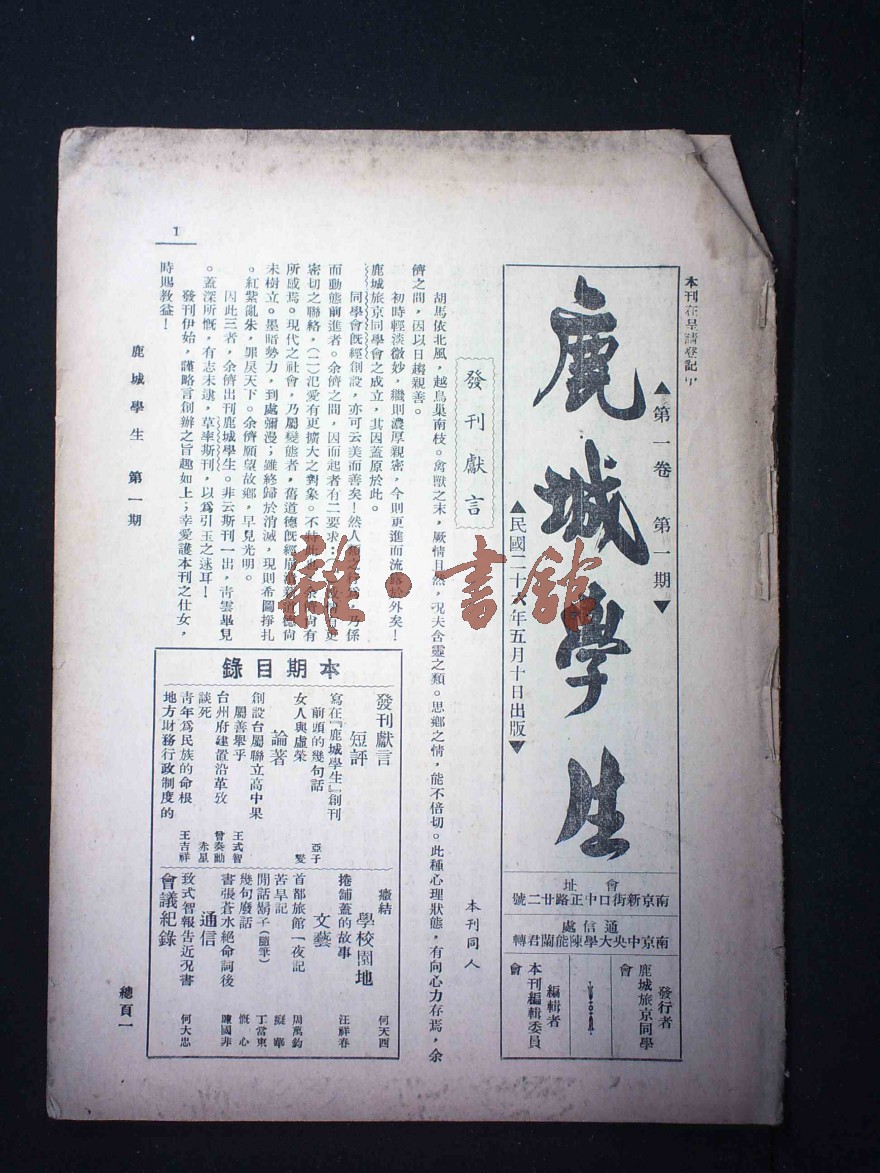 本刊在呈請登記中
鹿城學生
▲第一卷 第一期▼
▲民國二十六年五月十日出版▼
會址
南京新街口中正路廿二號
通信處
南京中央大學陳能蘭君轉
發行者
鹿城旅京同學
會
編輯者
本刊編輯委員
會
發刊獻言
本刊同人
胡馬依北風,越鳥巢南枝。禽獸之末,厥情且然,況夫含靈之類。思鄉之情,能不倍切。此種心理狀態,有向心力存焉,余
儕之間,因以日趨親善。
初時輕淡微妙,繼則濃厚親密,今則更進而流露於外矣!
鹿城旅京同學會之成立,其因蓋原於此。
同學會旣經創設,亦可云美而善矣!然人類之 乃係
而動態前進者。余儕之間,因而起者有二要求: 更
密切之聯絡,(二)汜愛有更擴大之對象。不特此也,余儕尙有
所感焉。現代之社會,乃屬變態者,舊道德旣經 新道德尙
未樹立。墨暗勢力,到處彌漫;雖終歸於消滅,現則希圖掙扎
。紅紫亂朱,罪戾天下。余儕願望故鄉,早見光明。
因此三者,余儕出刊鹿城學生。非云斯刊一出,靑雲畢見
。蓋深所慨,有志未逮,草率斯刊,以爲引玉之速耳!
發刊伊始,謹略言創辦之旨趣如上;幸愛護本刊之仕女,
時賜教益!
本期目錄
發刊獻言
短評
寫在『鹿城學生』創刊
前頭的幾句話 亞子
女人與虛榮 燮
論著
創設台屬聯立高中果
屬善舉乎 王式智
台州府建置沿革攷 曾奏勳
談死 赤星
靑年爲民族的命根 王吉祥
地方財務行政制度的
癥結 何天酉
學校園地
捲舖蓋的故事 汪祥春
文藝
首都旅館一夜記 周萬鈞
苦旱記 華
閒話鬍子(隨筆) 丁當東
幾句廢話 慨心
書張蒼水絶命詞後 陳國非
通信
致式智報告近況書 何大忠
會議紀錄
1
鹿城學生 第一期
總頁一
雜·書館